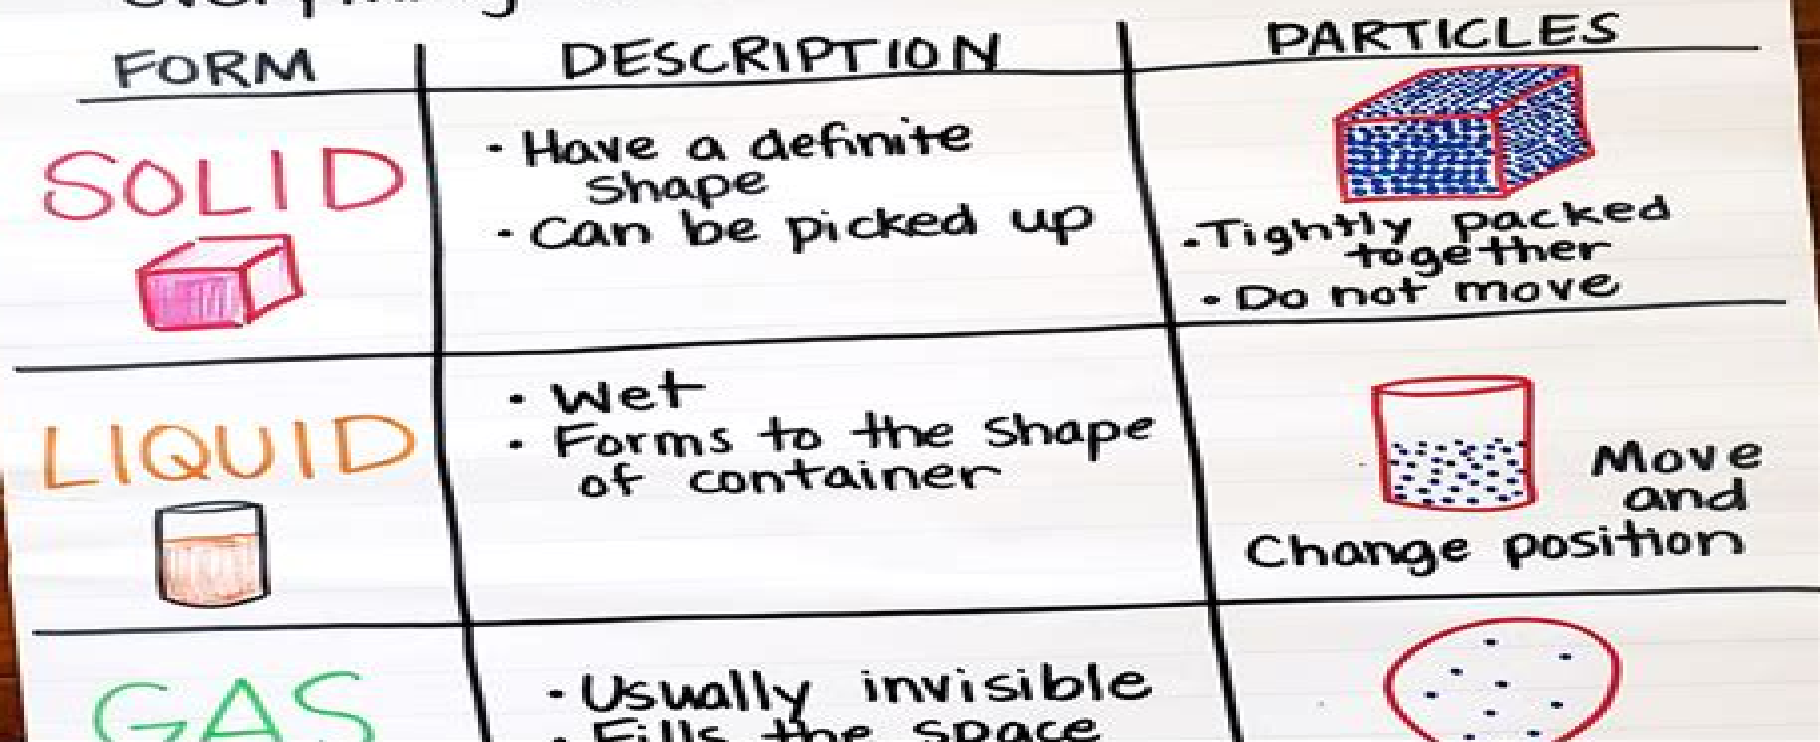 FORM DESCRIPTION PARTICLES
SOLID
• Have a definite
shape
• Can be picked up
• Tightly packed
together
• Do not move
LIQUID
• Wet
• Forms to the shape
of container
Move
and
Change position
GAS
• Usually invisible
• Fills the space